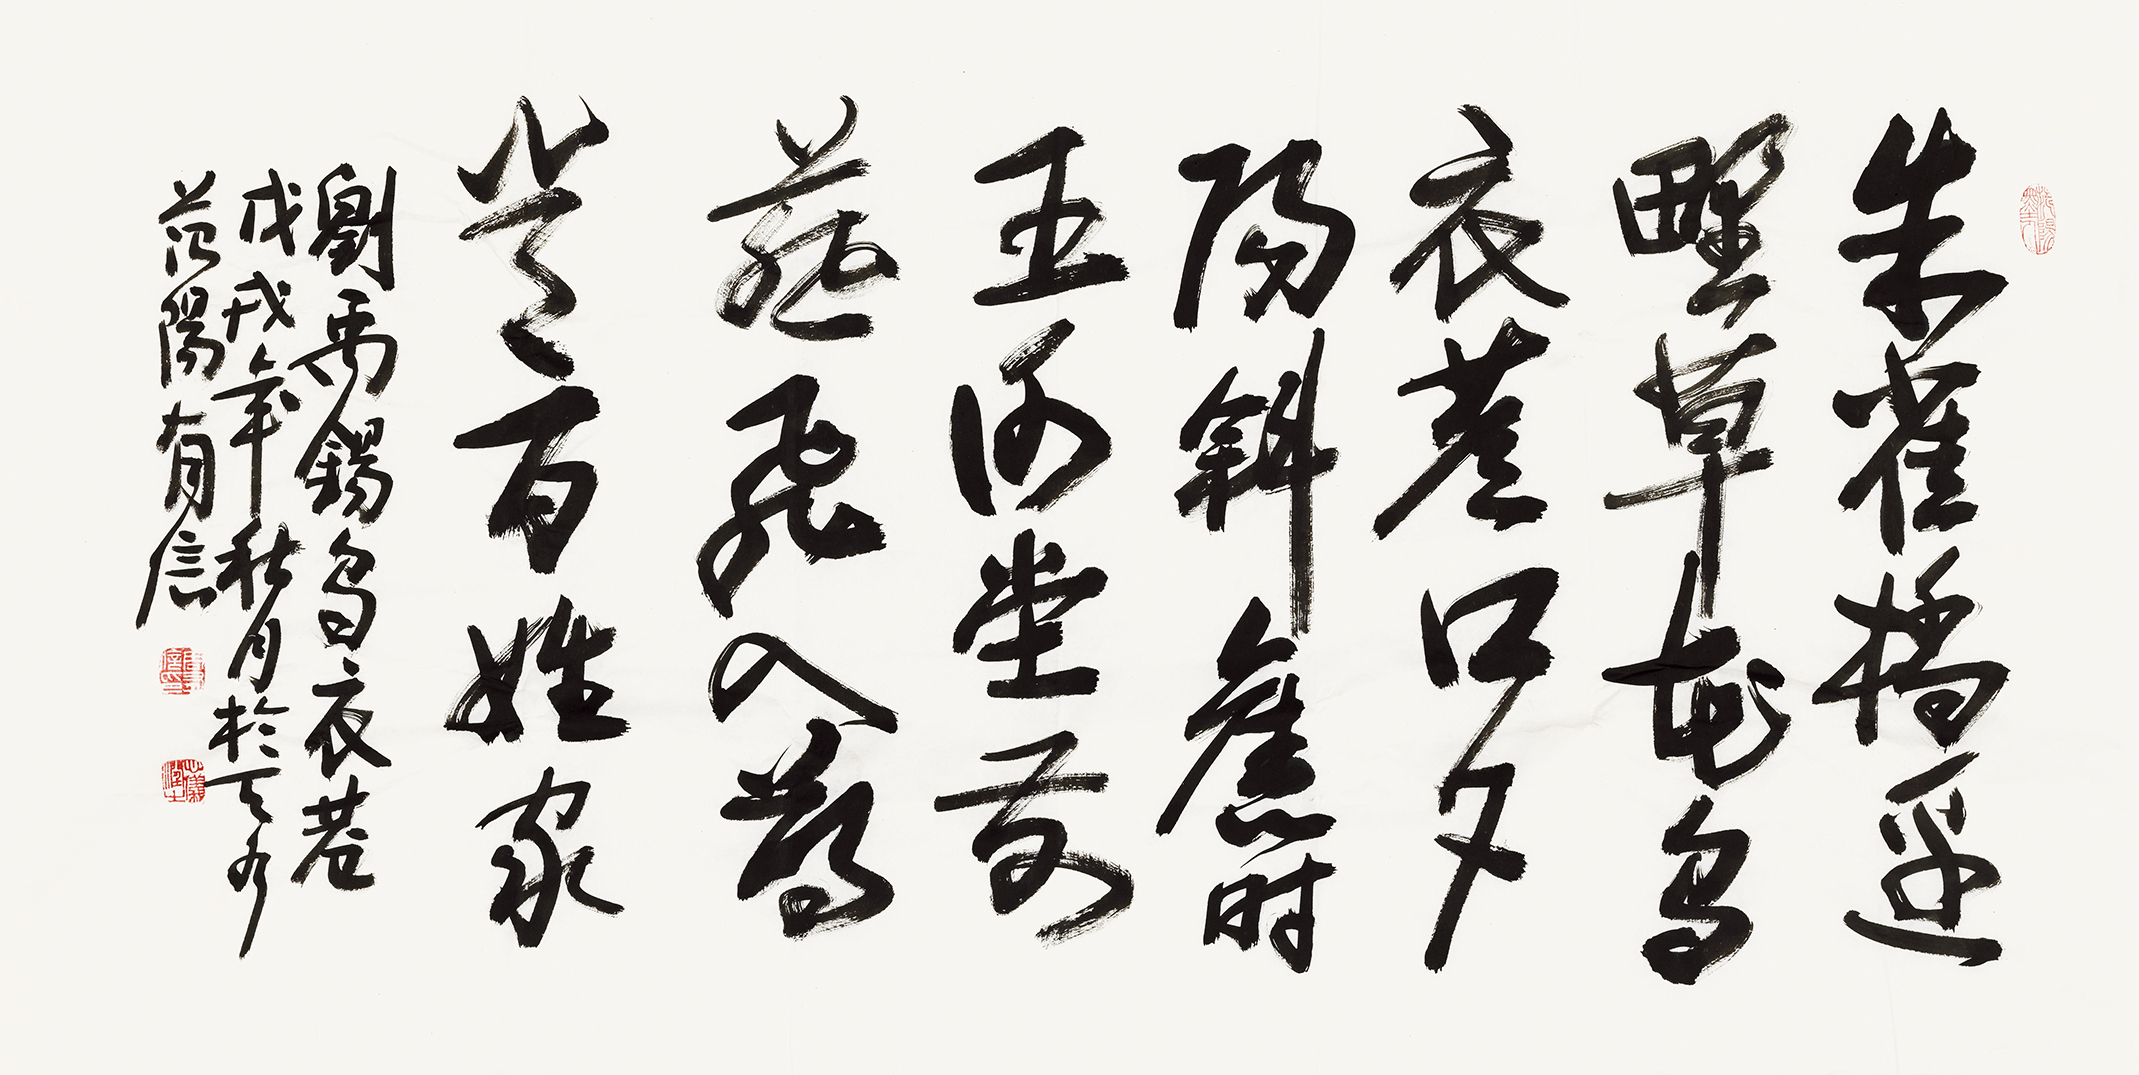 朱雀橋邊
野草花烏
衣巷口夕
陽斜舊时
王謝堂前
燕飛入尋
常百姓家
劉禹錫烏衣巷
戊戌年秋月於
范陽有信